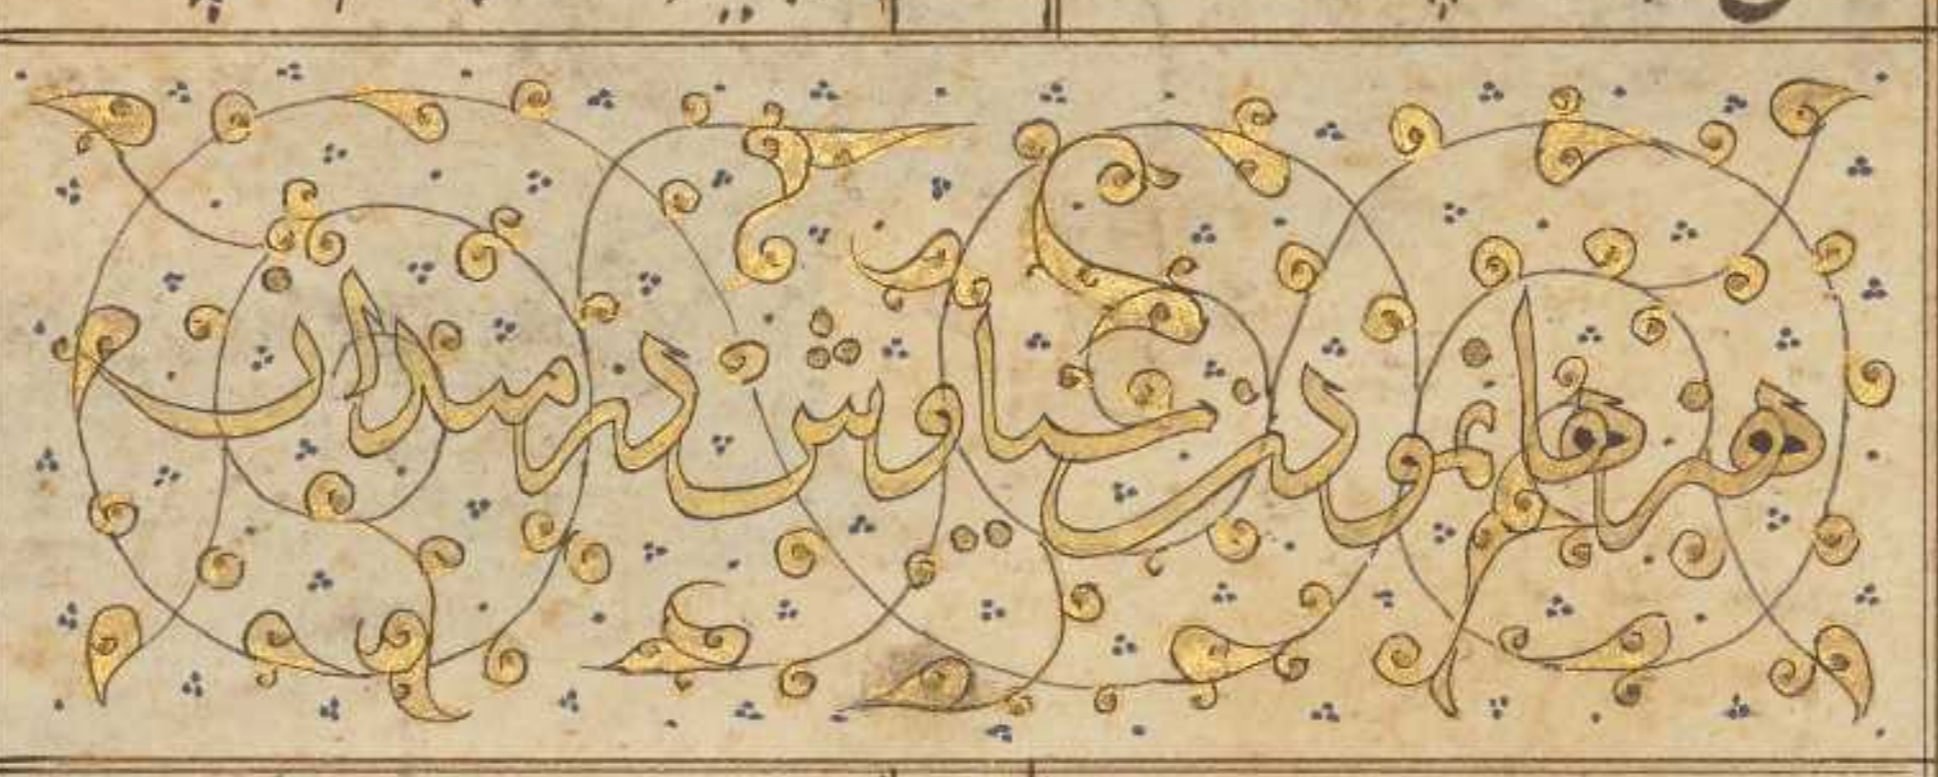 هنرها نمودن سیاوش در میدان